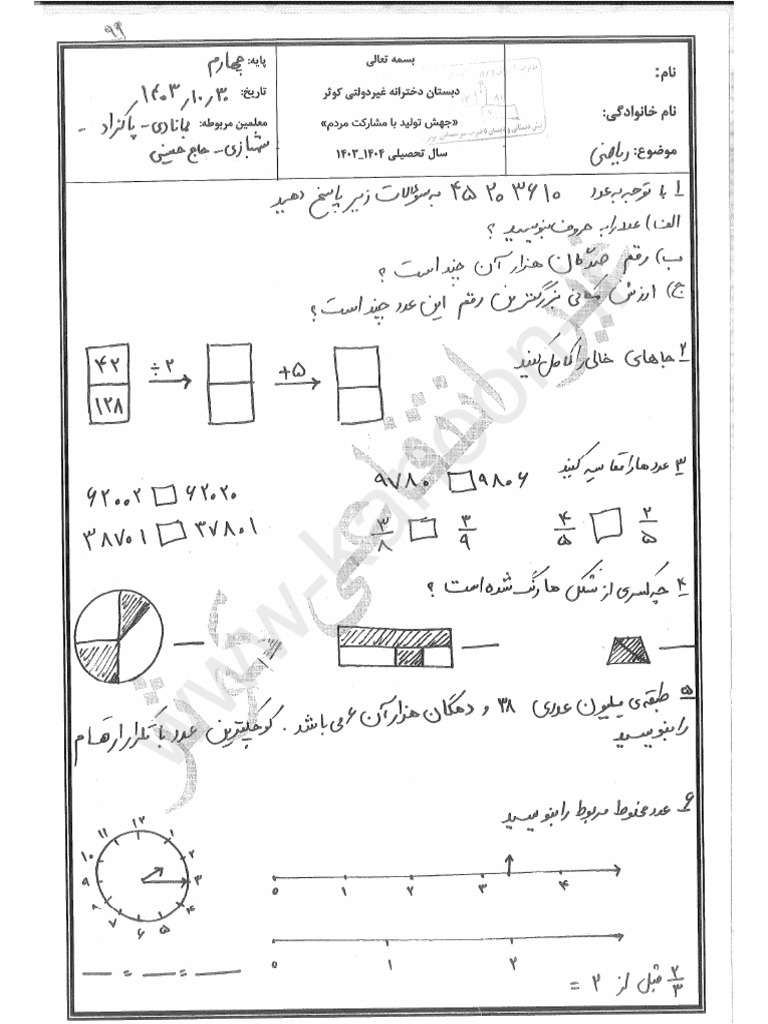 ۹۹
نام:
نام خانوادگی:
موضوع: ریاضی
بسمه تعالی
دبستان دخترانه غیردولتی کوثر
«جهش تولید با مشارکت مردم»
سال تحصیلی ۱۴۰۴_۱۴۰۳
پایه: چهارم
تاریخ: ۱۴۰۳/۱۰/۳۰
معلمین مربوطه: بانادی - پاکنژاد -
شهبازی - حاج حسینی
۱ با توجه به عدد ۴۵۲۰۳۶۱۰ به سؤالات زیر پاسخ دهید
الف) عدد را به حروف بنویسید ؟
ب) رقم صدگان هزار آن چند است ؟
ج) ارزش مکانی بزرگترین رقم این عدد چند است ؟
۲ جاهای خالی را کامل کنید
۴۲ ÷۲ +۵
۱۲۸
۳ عددها را مقایسه کنید
۹۷۸۰ □ ۹۸۰۶
۶۲۰۰۲ □ ۶۲۰۲۰
۳۸۷۰۱ □ ۳۷۸۰۱
۳/۸ □ ۳/۹
۴/۵ □ ۲/۵
۴ چه کسری از شکل ها رنگ شده است ؟
۵ طبقه‌ی میلیون عددی ۳۸ و دهگان هزار آن ۶ می باشد . کوچکترین عدد با تکرار ارقام
را بنویسید
۶ عدد مخلوط مربوط را بنویسید
۱۲ ۱ ۲ ۳ ۴ ۵ ۶ ۷ ۸ ۹ ۱۰ ۱۱
۰ ۱ ۲ ۳ ۴
۰ ۱ ۲
__ = __ = __
۲/۳ قبل از ۲ =
غیر انتفاعی کوثر
www-kanoon-ir